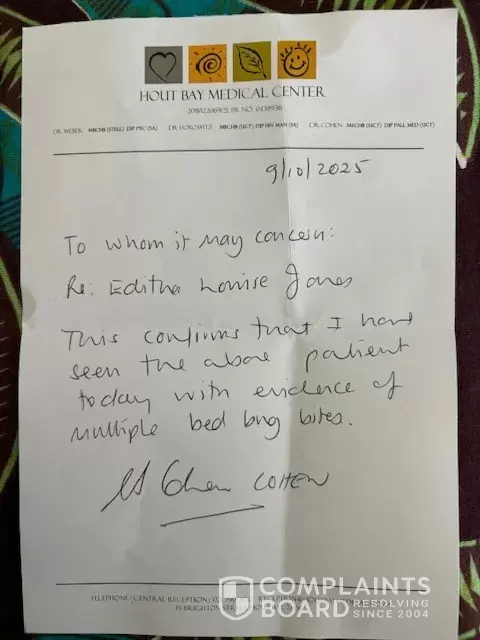 HOUT BAY MEDICAL CENTER
DR. WEBER MBCHB (STELL) DIP PEC (SA) DR. HOROWITZ MBCHB (UCT) DIP HIV MAN (SA) DR. COHEN MBCHB (UCT) DIP PALL MED (UCT)
9/10/2025
To whom it May concern:
Re: Editha Louise Jones
This confirms that I have
seen the above patient
today with evidence of
multiple bed bug bites.
Cohen COHEN
TELEPHONE (CENTRAL RECEPTION)
COMPLAINTS
BOARD RESOLVING
SINCE 2004